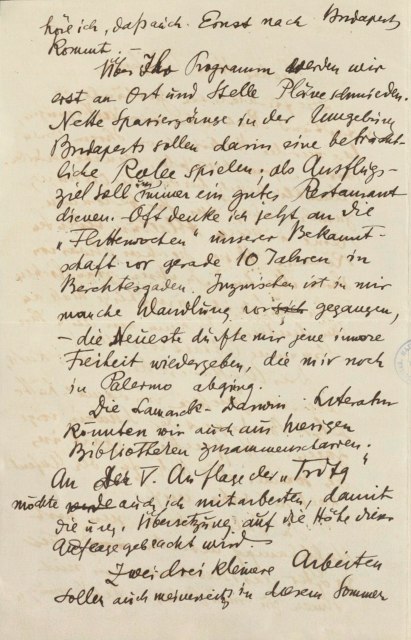 höre ich, daß auch Ernst nach Budapest
kommt. —
Über Ihr Programm werden wir
erst an Ort und Stelle Pläne schmieden.
Nette Spaziergänge in der Umgebung
Budapests sollen darin eine beträcht-
liche Rolle spielen; als Ausflugs-
ziel soll immer ein gutes Restaurant
dienen. – Oft denke ich jetzt an die
„Flitterwochen" unserer Bekannt-
schaft vor gerade 10 Jahren in
Berchtesgaden. Inzwischen ist in mir
manche Wandlung vor sich gegangen,
– die Neueste dürfte mir jene innere
Freiheit wiedergeben, die mir noch
in Palermo abging.
Die Lamarck-Darwin-Literatur
könnten wir auch aus hiesigen
Bibliotheken zusammenscharren.
An der V. Auflage der „Trdtg"
möchte auch ich mitarbeiten, damit
die ung. Übersetzung auf die Höhe dieser
Auflage gebracht wird.
Zwei drei kleinere Arbeiten
sollen auch meinerseits in diesem Sommer